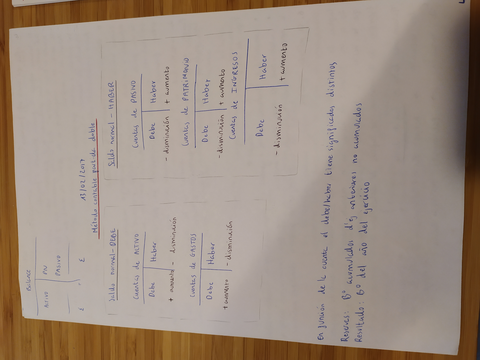 Balance
ACTIVO
PN
PASIVO
13/02/2017
Método contable por partida doble
Saldo normal - DEBE
Cuentas de ACTIVO
Debe | Haber
+ aumento - disminución
Cuentas de GASTOS
Debe | Haber
+ aumento - disminución
Saldo normal - HABER
Cuentas de PASIVO
Debe | Haber
- disminución + aumento
Cuentas de PATRIMONIO
Debe | Haber
- disminución + aumento
Cuentas de INGRESOS
Debe | Haber
- disminución + aumento
En función de la cuenta el debe/haber tiene significados distintos
Reservas: Bº acumulados de anteriores no acumulados
Resultado: Bº del año del ejercicio